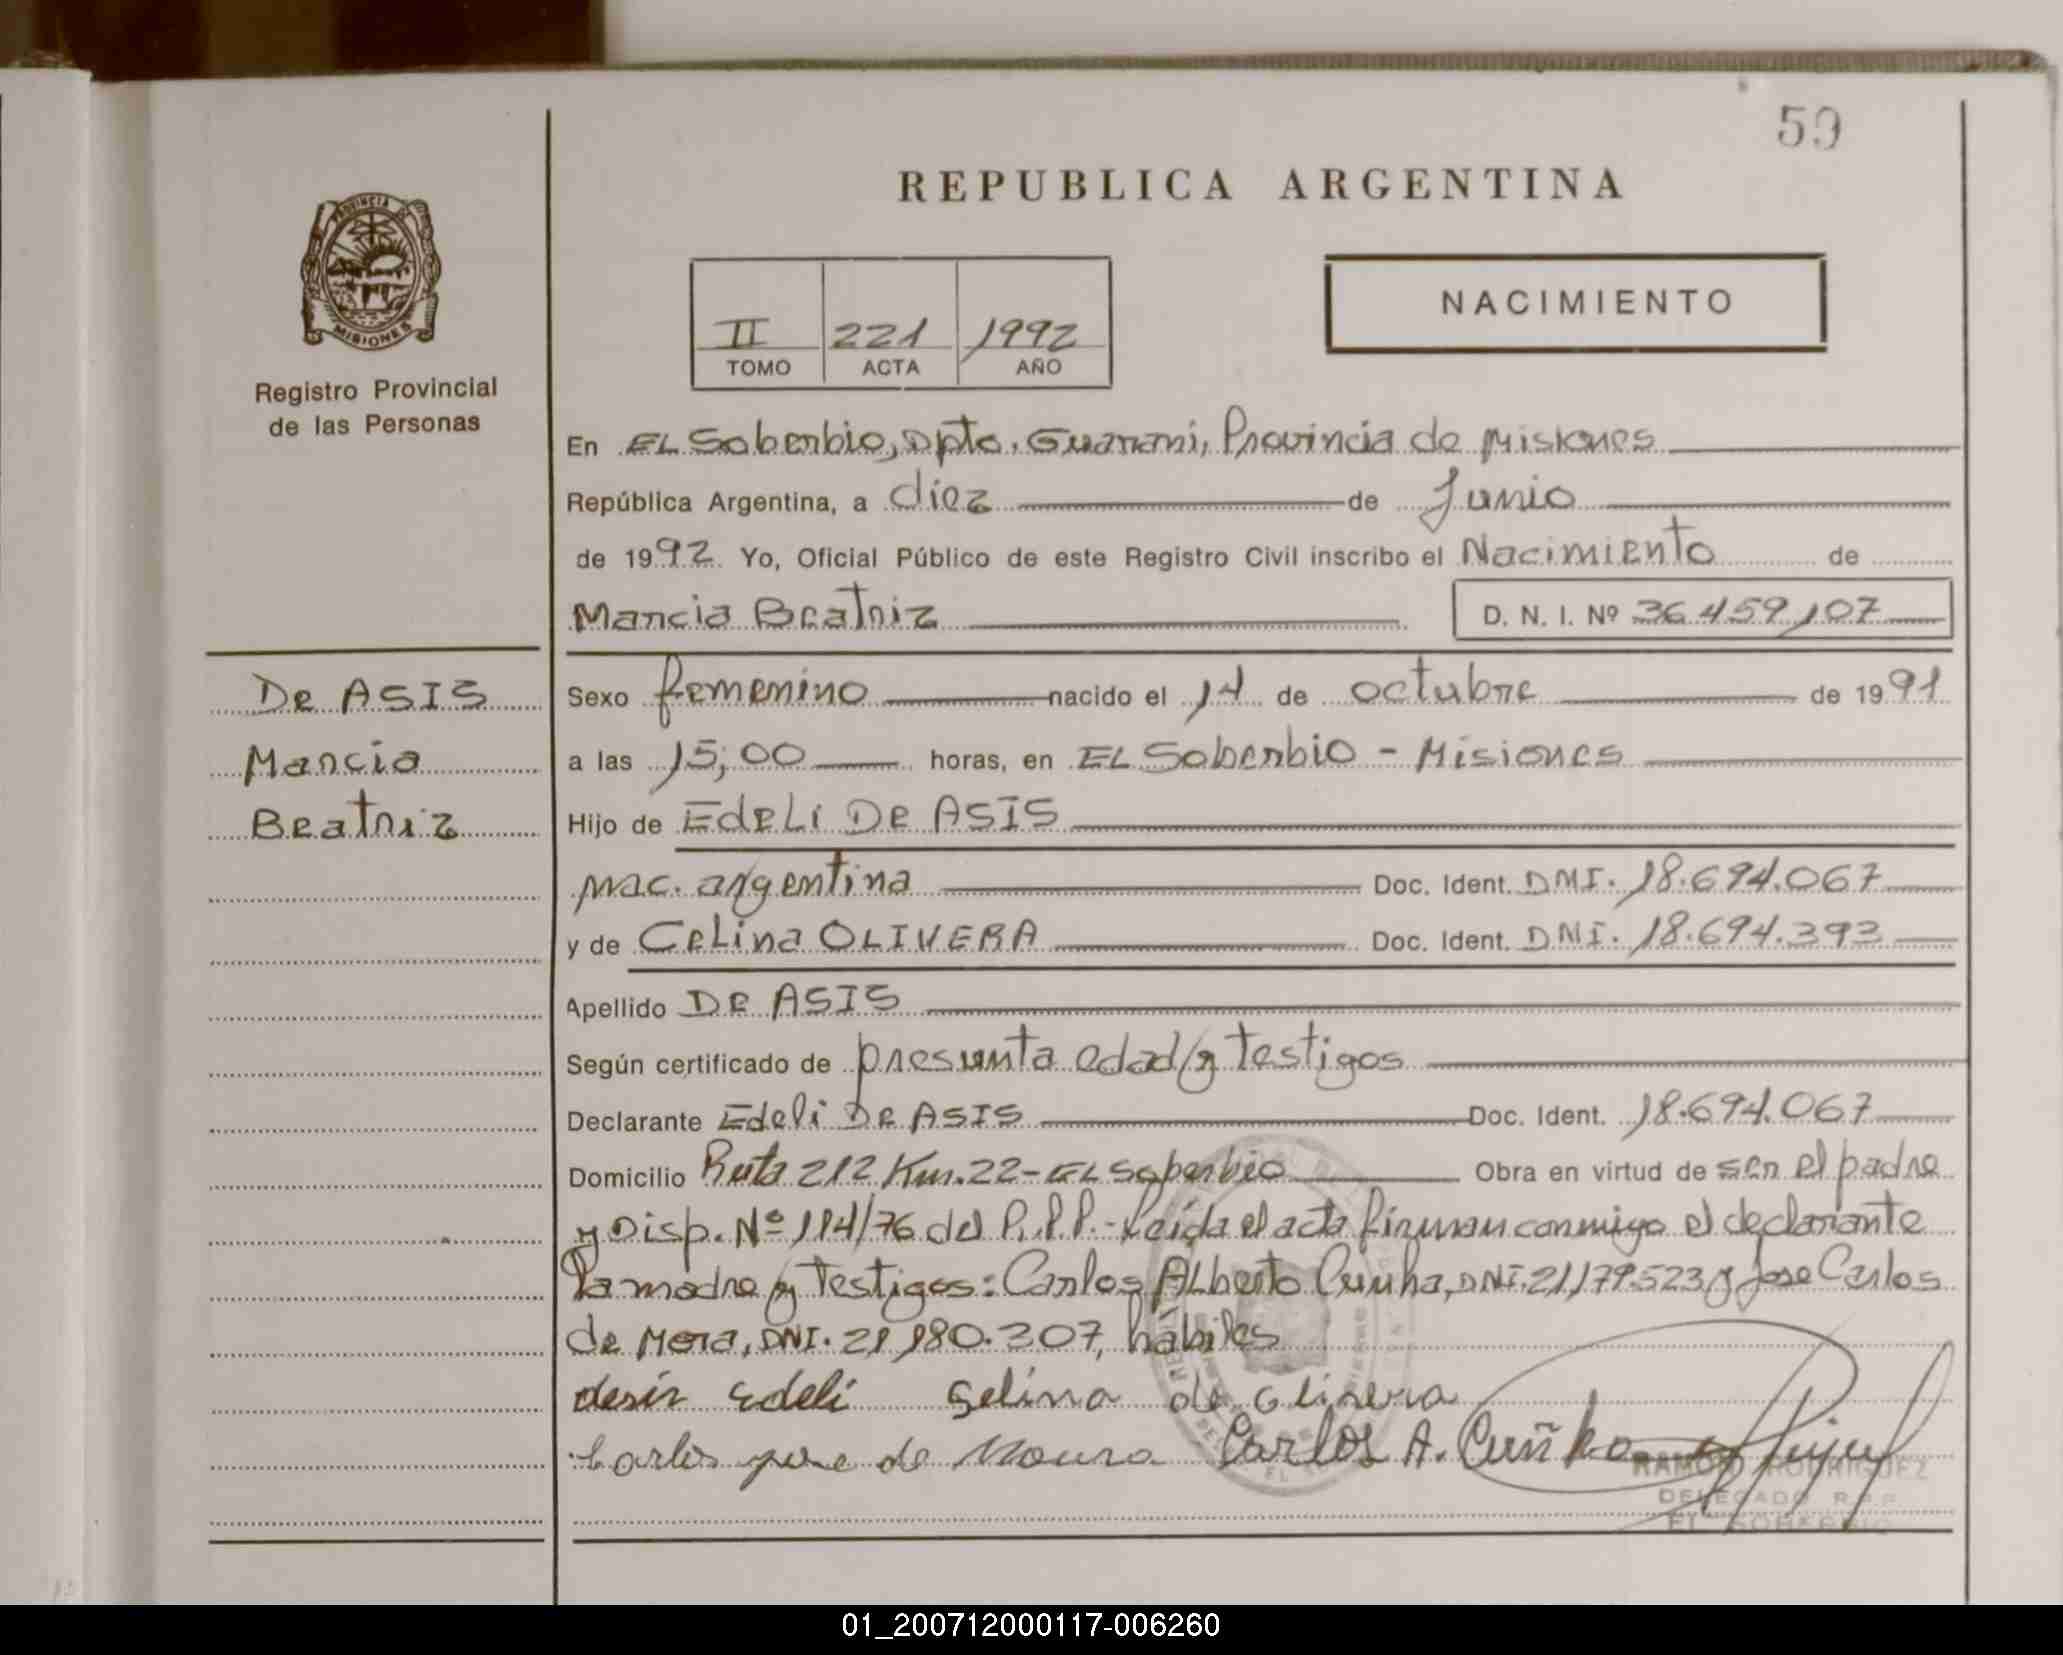 59
REPUBLICA ARGENTINA
PROVINCIA DE
MISIONES
Registro Provincial
de las Personas
II 221 1992
TOMO ACTA AÑO
NACIMIENTO
En EL Soberbio, Dpto. Guarani, Provincia de Misiones
República Argentina, a diez de Junio
de 1992 Yo, Oficial Público de este Registro Civil inscribo el Nacimiento de
Marcia Beatriz D. N. I. Nº 36.459,107
De ASIS
Marcia
Beatriz
Sexo femenino nacido el 14 de octubre de 1991
a las 15,00 horas, en EL Soberbio - Misiones
Hijo de Edeli De ASIS
nac. argentina Doc. Ident. DNI. 18.694.067
y de Celina OLIVERA Doc. Ident. DNI. 18.694.393
Apellido De ASIS
Según certificado de presunta edad y testigos
Declarante Edeli De ASIS Doc. Ident. 18.694.067
Domicilio Ruta 212 Km. 22 - EL Soberbio Obra en virtud de ser el padre
y Disp. Nº 114/76 del R.P.P. - Leída el acta firman conmigo el declarante
la madre y testigos: Carlos Alberto Cunha, DNI. 21,179.523 y Jose Carlos
de Mora, DNI. 21,180.307, hábiles
desir Edeli Selina de Olivera
Carlos jose de Moura Carlos A. Cuñha
RAMON RODRIGUEZ
DELEGADO R.P.P.
EL SOBERBIO
01_200712000117-006260